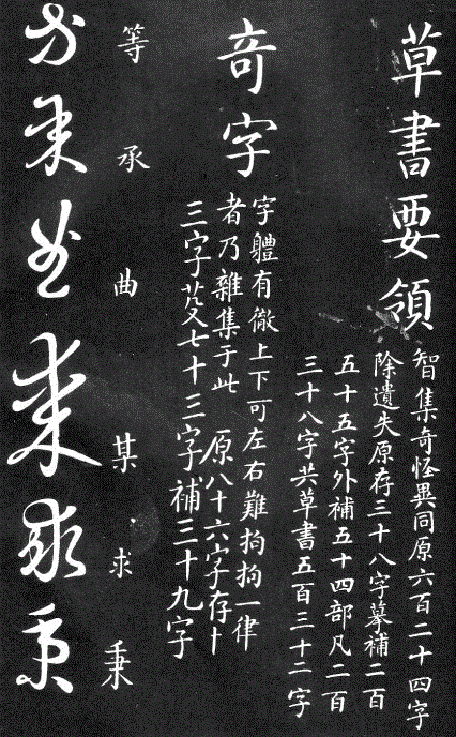 草書要領
智集奇怪異同原六百二十四字
除遺失原存三十八字摹補二百
五十五字外補五十四部凡二百
三十八字共草書五百三十二字
奇字
字體有徹上下可左右難拘拘一律
者乃雜集于此 原八十六字存十
三字芟七十三字補三十九字
等 承 曲 某 求 秉
等 承 曲 某 求 秉